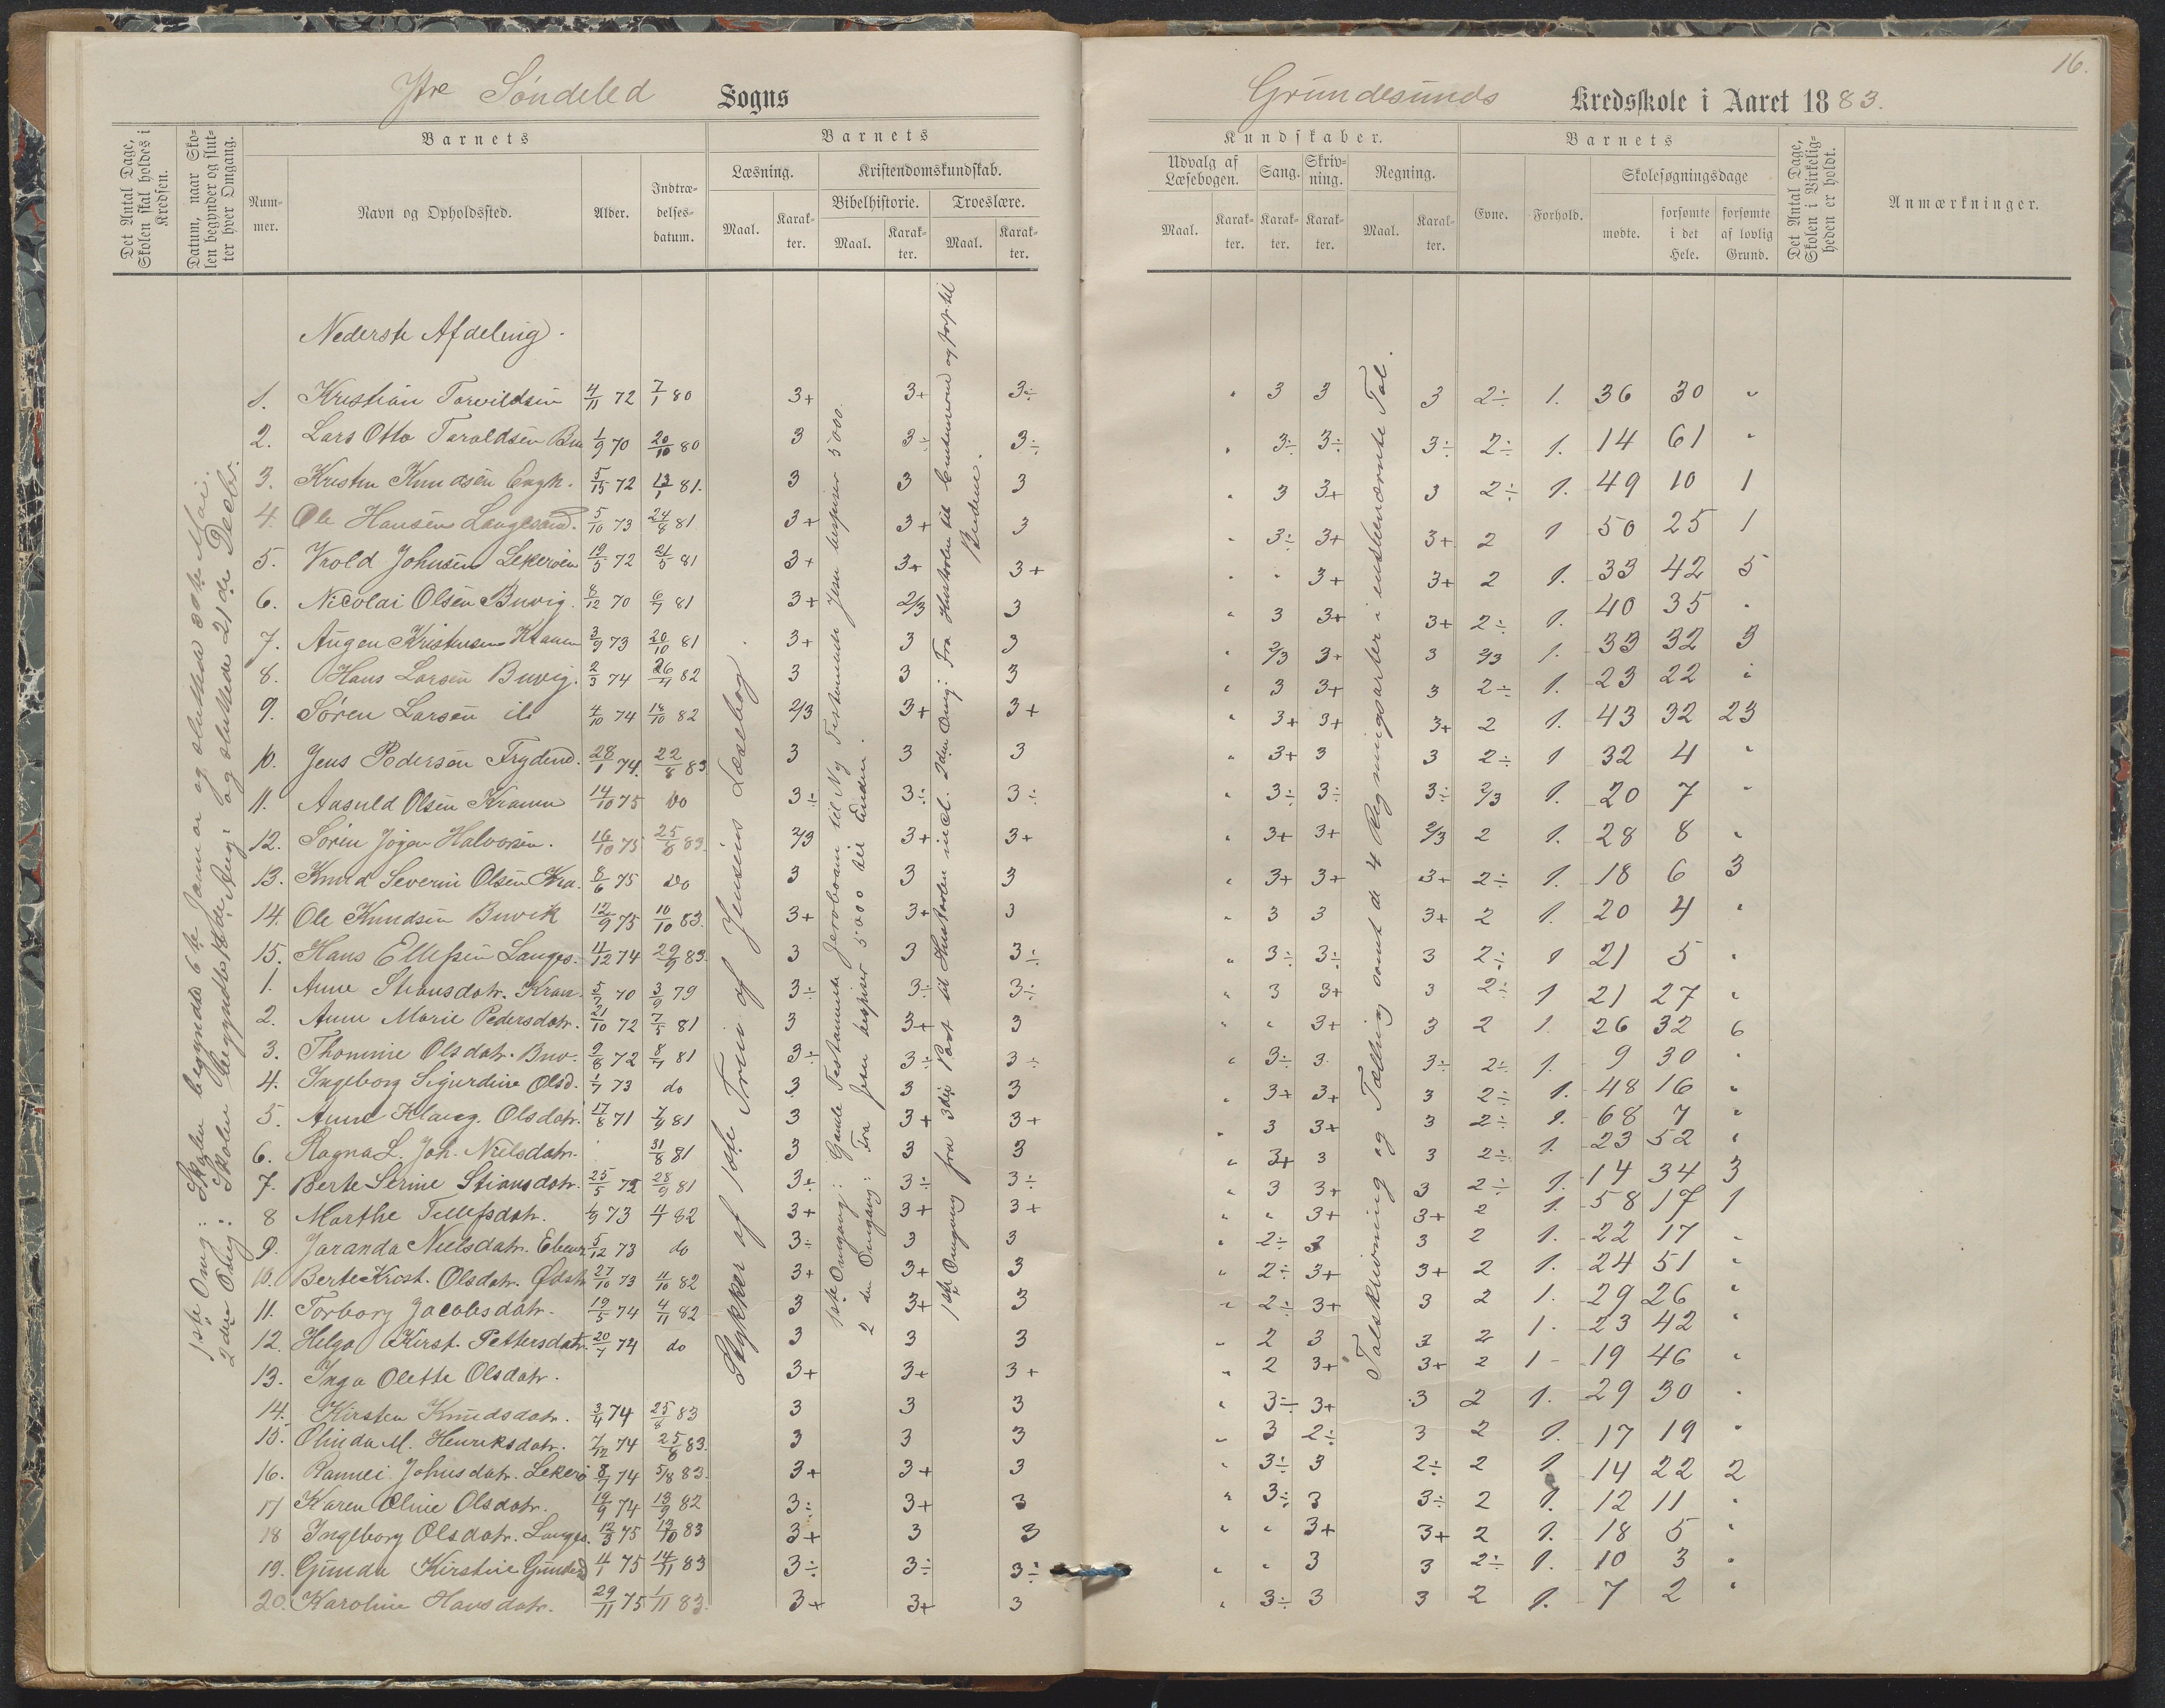 16.
Ytre Søndeled Sogns
Grundesunds Kredsskole i Aaret 1883.
Det Antal Dage, Skolen skal holdes i Kredsen.
Datum, naar Skolen begynder og slutter hver Omgang.
Barnets
Nummer.
Navn og Opholdssted.
Alder.
Indtrædelses-datum.
Barnets
Læsning.
Maal.
Karakter.
Kristendomskundskab.
Bibelhistorie.
Maal.
Karakter.
Troeslære.
Maal.
Karakter.
Kundskaber.
Udvalg af Læsebogen.
Maal.
Karakter.
Sang.
Karakter.
Skrivning.
Karakter.
Regning.
Maal.
Karakter.
Barnets
Evne.
Forhold.
Skolesøgningsdage
mødte.
forsømte i det Hele.
forsømte af lovlig Grund.
Det Antal Dage, Skolen i Virkeligheden er holdt.
Anmærkninger.
1ste Omg: Skolen begyndte 6te Januar og sluttede Mai.
2den Omg: Skolen begyndte Aug: og sluttede 21de Decbr.
Stykker af 1ste Trin af Jensens Læsebog.
1ste Omgang: Gamle Testamente Jeroboam til Ny Testamente Jesu bespiser 5000.
2den Omgang: Fra Jesu bespiser 5000 til Enden.
1ste Omgang fra 3die Part til Hustavlen incl. 2den Omg: Fra Hustavlen til
Talskrivning og Tælling samt de 4 Regningsarter i ensbenævnte Tal.
Nederste Afdeling.
1. Kristian Torvildsen 4/11 72 7/1 80 3+ 3+ 3÷ " 3 3 3 2÷ 1. 36 30 "
2. Lars Otto Taraldsen 1/9 70 20/10 80 3 3÷ 3÷ " 3÷ 3÷ 3÷ 2÷ 1. 14 61 "
3. Kristen Knudsen 5/15 72 13/1 81. 3 3 3 " 3 3+ 3 2÷ 1. 49 10 1
4. Ole Hansen Langesand. 5/10 73 24/8 81 3+ 3+ 3 " 3÷ 3+ 3+ 2 1 50 25 1
5. Vrold Johnsen Lekerøen 19/5 72 21/5 81 3+ 3+ 3+ " " 3+ 3+ 2 1. 33 42 5
6. Nicolai Olsen Buvig. 8/12 70 6/7 81 3+ 2/3 3 " 3 3+ 3+ 2÷ 1. 40 35 "
7. Augen Kristensen 3/9 73 20/10 81 3+ 3 3 " 2/3 3+ 3 2/3 1. 33 32 3
8. Hans Larsen Buvig. 2/3 74 26/4 82 3 3 3 " 3 3+ 3 2÷ 1. 23 22 "
9. Søren Larsen 4/10 74 18/10 82 2/3 3+ 3+ " 3+ 3+ 3+ 2 1. 43 32 23
10. Jens Pedersen Frydend. 28/1 74. 22/8 83 3 3 3 " 3+ 3 3 2÷ 1 32 4 "
11. Aasuld Olsen 14/10 75 Do 3÷ 3÷ 3÷ " 3÷ 3÷ 3÷ 2/3 1. 20 7 "
12. Søren Jørgen Halvorsen. 16/10 75 25/8 83. 2/3 3+ 3+ " 3+ 3+ 2/3 2 1. 28 8 "
13. Knud Severin Olsen Kra. 8/6 75 Do 3 3 3 " 3+ 3+ 3+ 2÷ 1. 18 6 3
14. Ole Knudsen Buvik 12/9 75 10/10 83. 3+ 3+ 3 " 3 3 3+ 2 1. 20 4 "
15. Hans Ellefsen Langes. 4/12 74 29/9 83. 3 3 3÷ " 3÷ 3÷ 3 2÷ 1 21 5 "
1. Anne Stiansdatr. 5/7 70 3/9 79 3÷ 3÷ 3÷ " 3 3+ 3 2÷ 1 21 27 "
2. Anne Marie Pedersdatr. 21/10 72 7/5 81 3 3+ 3 " " 3+ 3 2 1. 26 32 6
3. Thomine Olsdatr. Buv. 9/8 72 8/4 81 3÷ 3÷ 3÷ " 3÷ 3 3÷ 2÷ 1. 9 30 "
4. Ingeborg Sigurdine Olsd. 1/7 73 do 3 3 3 " 3+ 3+ 3 2÷ 1. 48 16 "
5. Anne Olsdatr. 17/8 71 7/9 81 3 3+ 3+ " 3 3+ 3 2÷ 1. 68 7 "
6. Ragna L. Joh. Nielsdatr. 31/8 81 3 3 3 " 3+ 3 3 2÷ 1. 23 52 "
7. Berte Serine Stiansdatr. 25/5 72 28/9 81 3÷ 3÷ 3÷ " 3 3+ 3 2÷ 1. 14 34 3
8 Marthe Tellefsdatr. 4/9 73 4/7 82 3+ 3+ 3+ " " 3+ 3+ 2 1. 58 17 1
9. Jaranda Nielsdatr. 5/12 73 do 3÷ 3 3 " 2÷ 3 3 2 1. 22 17 "
10. Berte Krist. Olsdatr. 27/10 73 4/10 82 3+ 3+ 3 " 2÷ 3+ 3+ 2 1. 24 51 "
11. Torborg Jacobsdatr. 19/5 74 4/11 82 3 3+ 3 " 2÷ 3+ 3 2 1. 29 26 "
12. Helga Kirst. Pettersdatr. 20/7 74 do 3 3 3 " 2 3 3 2 1. 23 42 "
13. Inga Olette Olsdatr. 3+ 3+ 3+ " 2 3+ 3+ 2 1 19 46 "
14. Kirsten Knudsdatr. 3/4 74 25/8 83 3 3 3 " 3÷ 3+ 3 2 1. 29 30 "
15. Olinda M. Henriksdatr. 7/12 74 25/8 83. 3 3 3 " 3 2÷ 3 2 1. 17 19 "
16. Rannei Johnsdatr. Lekerø 8/7 74 5/8 83. 3+ 3+ 3 " 3÷ 3 2÷ 2 1 14 22 2
17 Karen Oline Olsdatr. 19/9 74 13/9 82 3÷ 3+ 3 " 3÷ 3 3÷ 2 1. 12 11 "
18 Ingeborg Olsdatr. Langes. 12/3 75 13/10 83 3+ 3 3 " " 3+ 3+ 2 1. 18 5 "
19. Gunda Kirstine 4/1 75 14/11 83 3÷ 3÷ 3÷ " " 3 3 2÷ 1. 10 3 "
20. Karoline Hansdatr. 29/11 75 1/11 83. 3+ 3+ 3 " 3÷ 3 3 2 1. 7 2 "